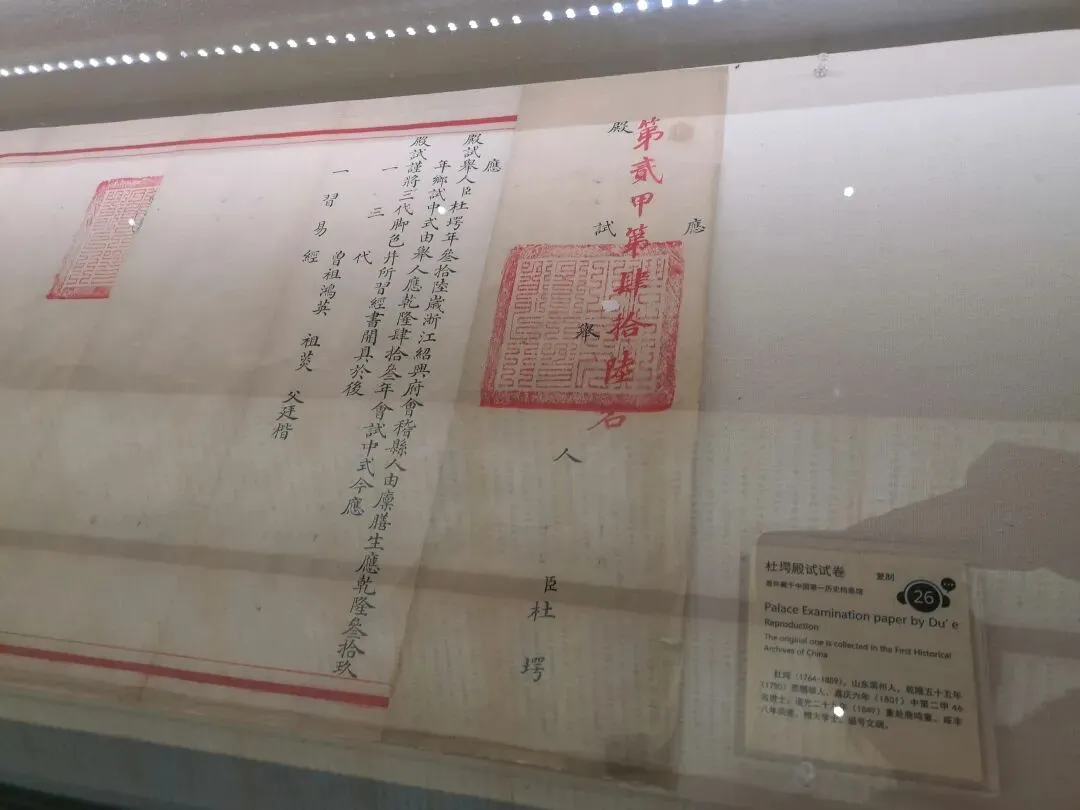 應
第貳甲第肆拾陸名
殿試舉人臣杜堮
應
殿試舉人臣杜堮年叁拾陸歲浙江紹興府會稽縣人由廩膳生應乾隆叁拾玖
年鄉試中式由舉人應乾隆肆拾叁年會試中式今應
殿試謹將三代脚色并所習經書開具於後
一三代
曾祖鴻英 祖 父廷楷
一習易經
杜堮殿试试卷 复制
原件藏于中国第一历史档案馆
26
Palace Examination paper by Du' e
Reproduction
The original one is collected in the First Historical
Archives of China
杜堮（1764-1859），山东滨州人，乾隆五十五年
（1790）恩赐举人，嘉庆六年（1801）中第二甲46
名进士，道光二十九年（1849）重赴鹿鸣宴，咸丰
八年病逝，赠大学士，谥号文端。